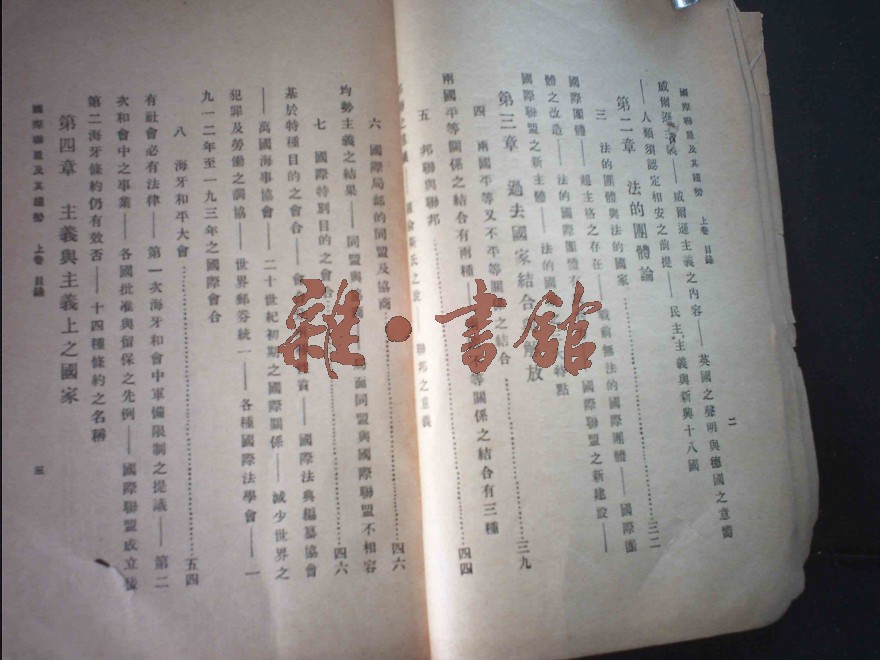 國際聯盟及其趨勢 上卷 目錄 二
威爾遜主義之內容——英國之聲明與德國之意嚮
——人類須認定相安之前提——民主主義與新興十八國
第二章 法的團體論
三 法的團體與法的國家……三二
國際團體——超主格之存在——戰前無法的國際團體——國際團
體之改造——法的國際團體——國際聯盟之新建設——
國際聯盟之新主體——法的國
第三章 過去國家結合 解放
四 兩國平等又不平等關係之結合……三九
兩國平等關係之結合有兩種——等關係之結合有三種
五 邦聯與聯邦……四四
聯邦之意義
六 國際局部的同盟及協商……四六
均勢主義之結果——同盟與 局面同盟與國際聯盟不相容
七 國際特別目的之會合……四六
基於特種目的之會合——會 ——國際法典編纂協會
——萬國海事協會——二十世紀初期之國際關係——減少世界之
犯罪及勞働之調協——世界郵券統一——各種國際法學會——一
九一二年至一九三年之國際會合
八 海牙和平大會……五四
有社會必有法律——第一次海牙和會中軍備限制之提議——第二
次和會中之事業——各國批准與留保之先例——國際聯盟成立後
第二海牙條約仍有效否——十四種條約之名稱
第四章 主義與主義上之國家
國際聯盟及其趨勢 上卷 目錄 三
雜·書館